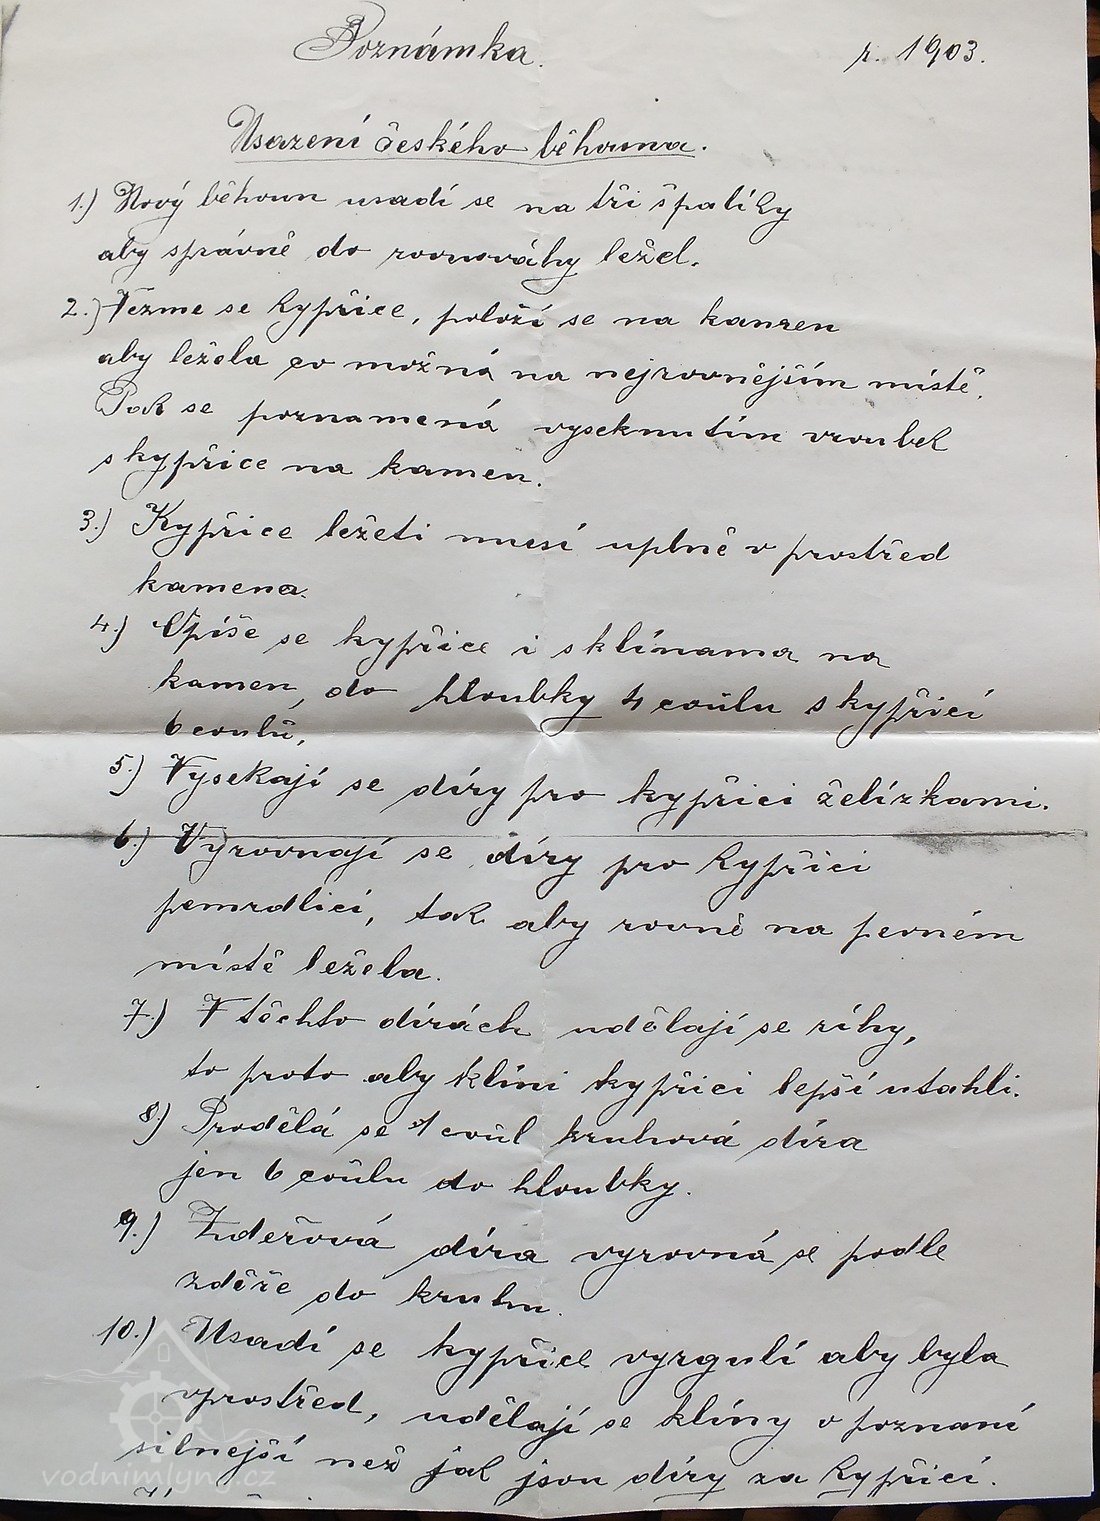 Poznámka. r. 1903.
Usazení českého běhouna.
1.) Nový běhoun usadí se na tři špalíky
aby správně do rovnováhy ležel.
2.) Vezme se kypřice, položí se na kamen
aby ležela co možná na nejrovnějším místě.
Pak se poznamená vyseknutím vroubek
s kypřice na kamen.
3.) Kypřice ležeti musí uplně v prostřed
kamena.
4.) Opíše se kypřice i s klínama na
kamen, do hloubky 4 coulu s kypřicí
6 coulů,
5.) Vysekají se díry pro kypřici želízkami.
6.) Vyrovnají se díry pro kypřici
pemrdlicí, tak aby rovně na pevném
místě ležela.
7.) V těchto dírách udělají se ríhy,
to proto aby klíni kypřici lepší utahli.
8.) Prodělá se 1 coul kruhová díra
jen 6 coulu do hloubky.
9.) Zděřová díra vyrovná se podle
zděře do kruhu.
10.) Usadí se kypřice vyrgulí aby byla
vprostřed, udělají se klíny o poznaní
silnejší než jak jsou díry za kypřicí.
vodnimlyny.cz